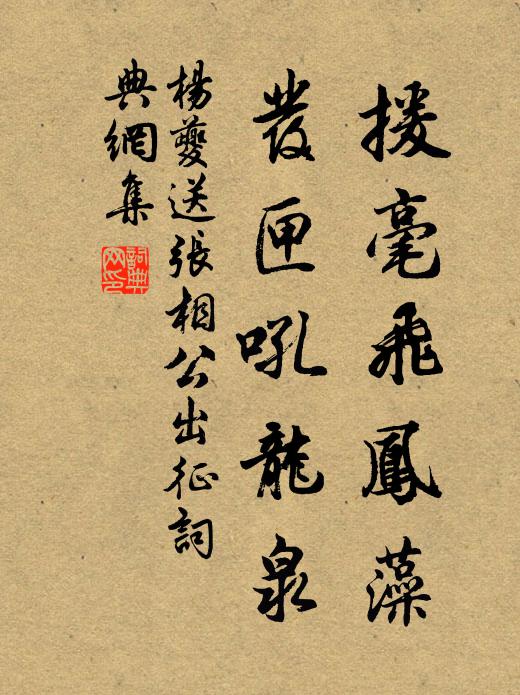 援毫飛鳳藻
發匣吼龍泉
楊夔送張相公出征詞
典網集
詞典网印